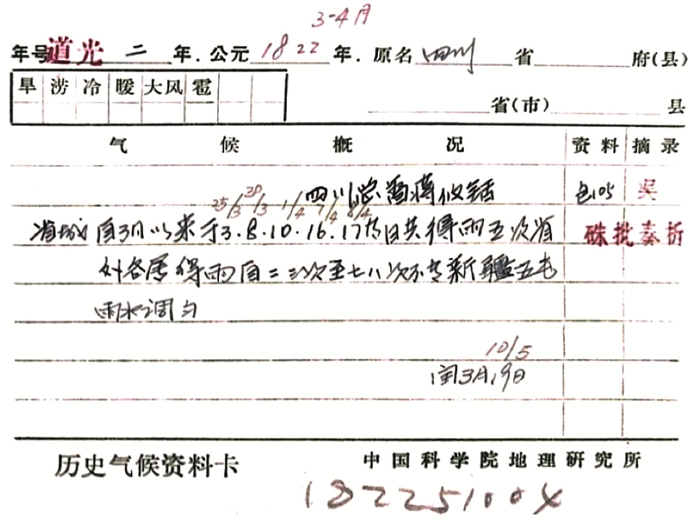 3-4月
年号 道光 二 年．公元 1822 年．原名 四川 省 府(县)
旱 涝 冷 暖 大风 雹 省(市) 县
气 候 概 况 资料 摘录
四川总督蒋攸铦 包105 吴
25/3 30/3 1/4 7/4 8/4
省城自3月以来于3.8.10.16.17等日共得雨五次省 硃批奏折
外各属得雨自二三次至七八次不等新疆五屯
雨水调匀
10/5
闰3月19日
历史气候资料卡 中国科学院地理研究所
182251004